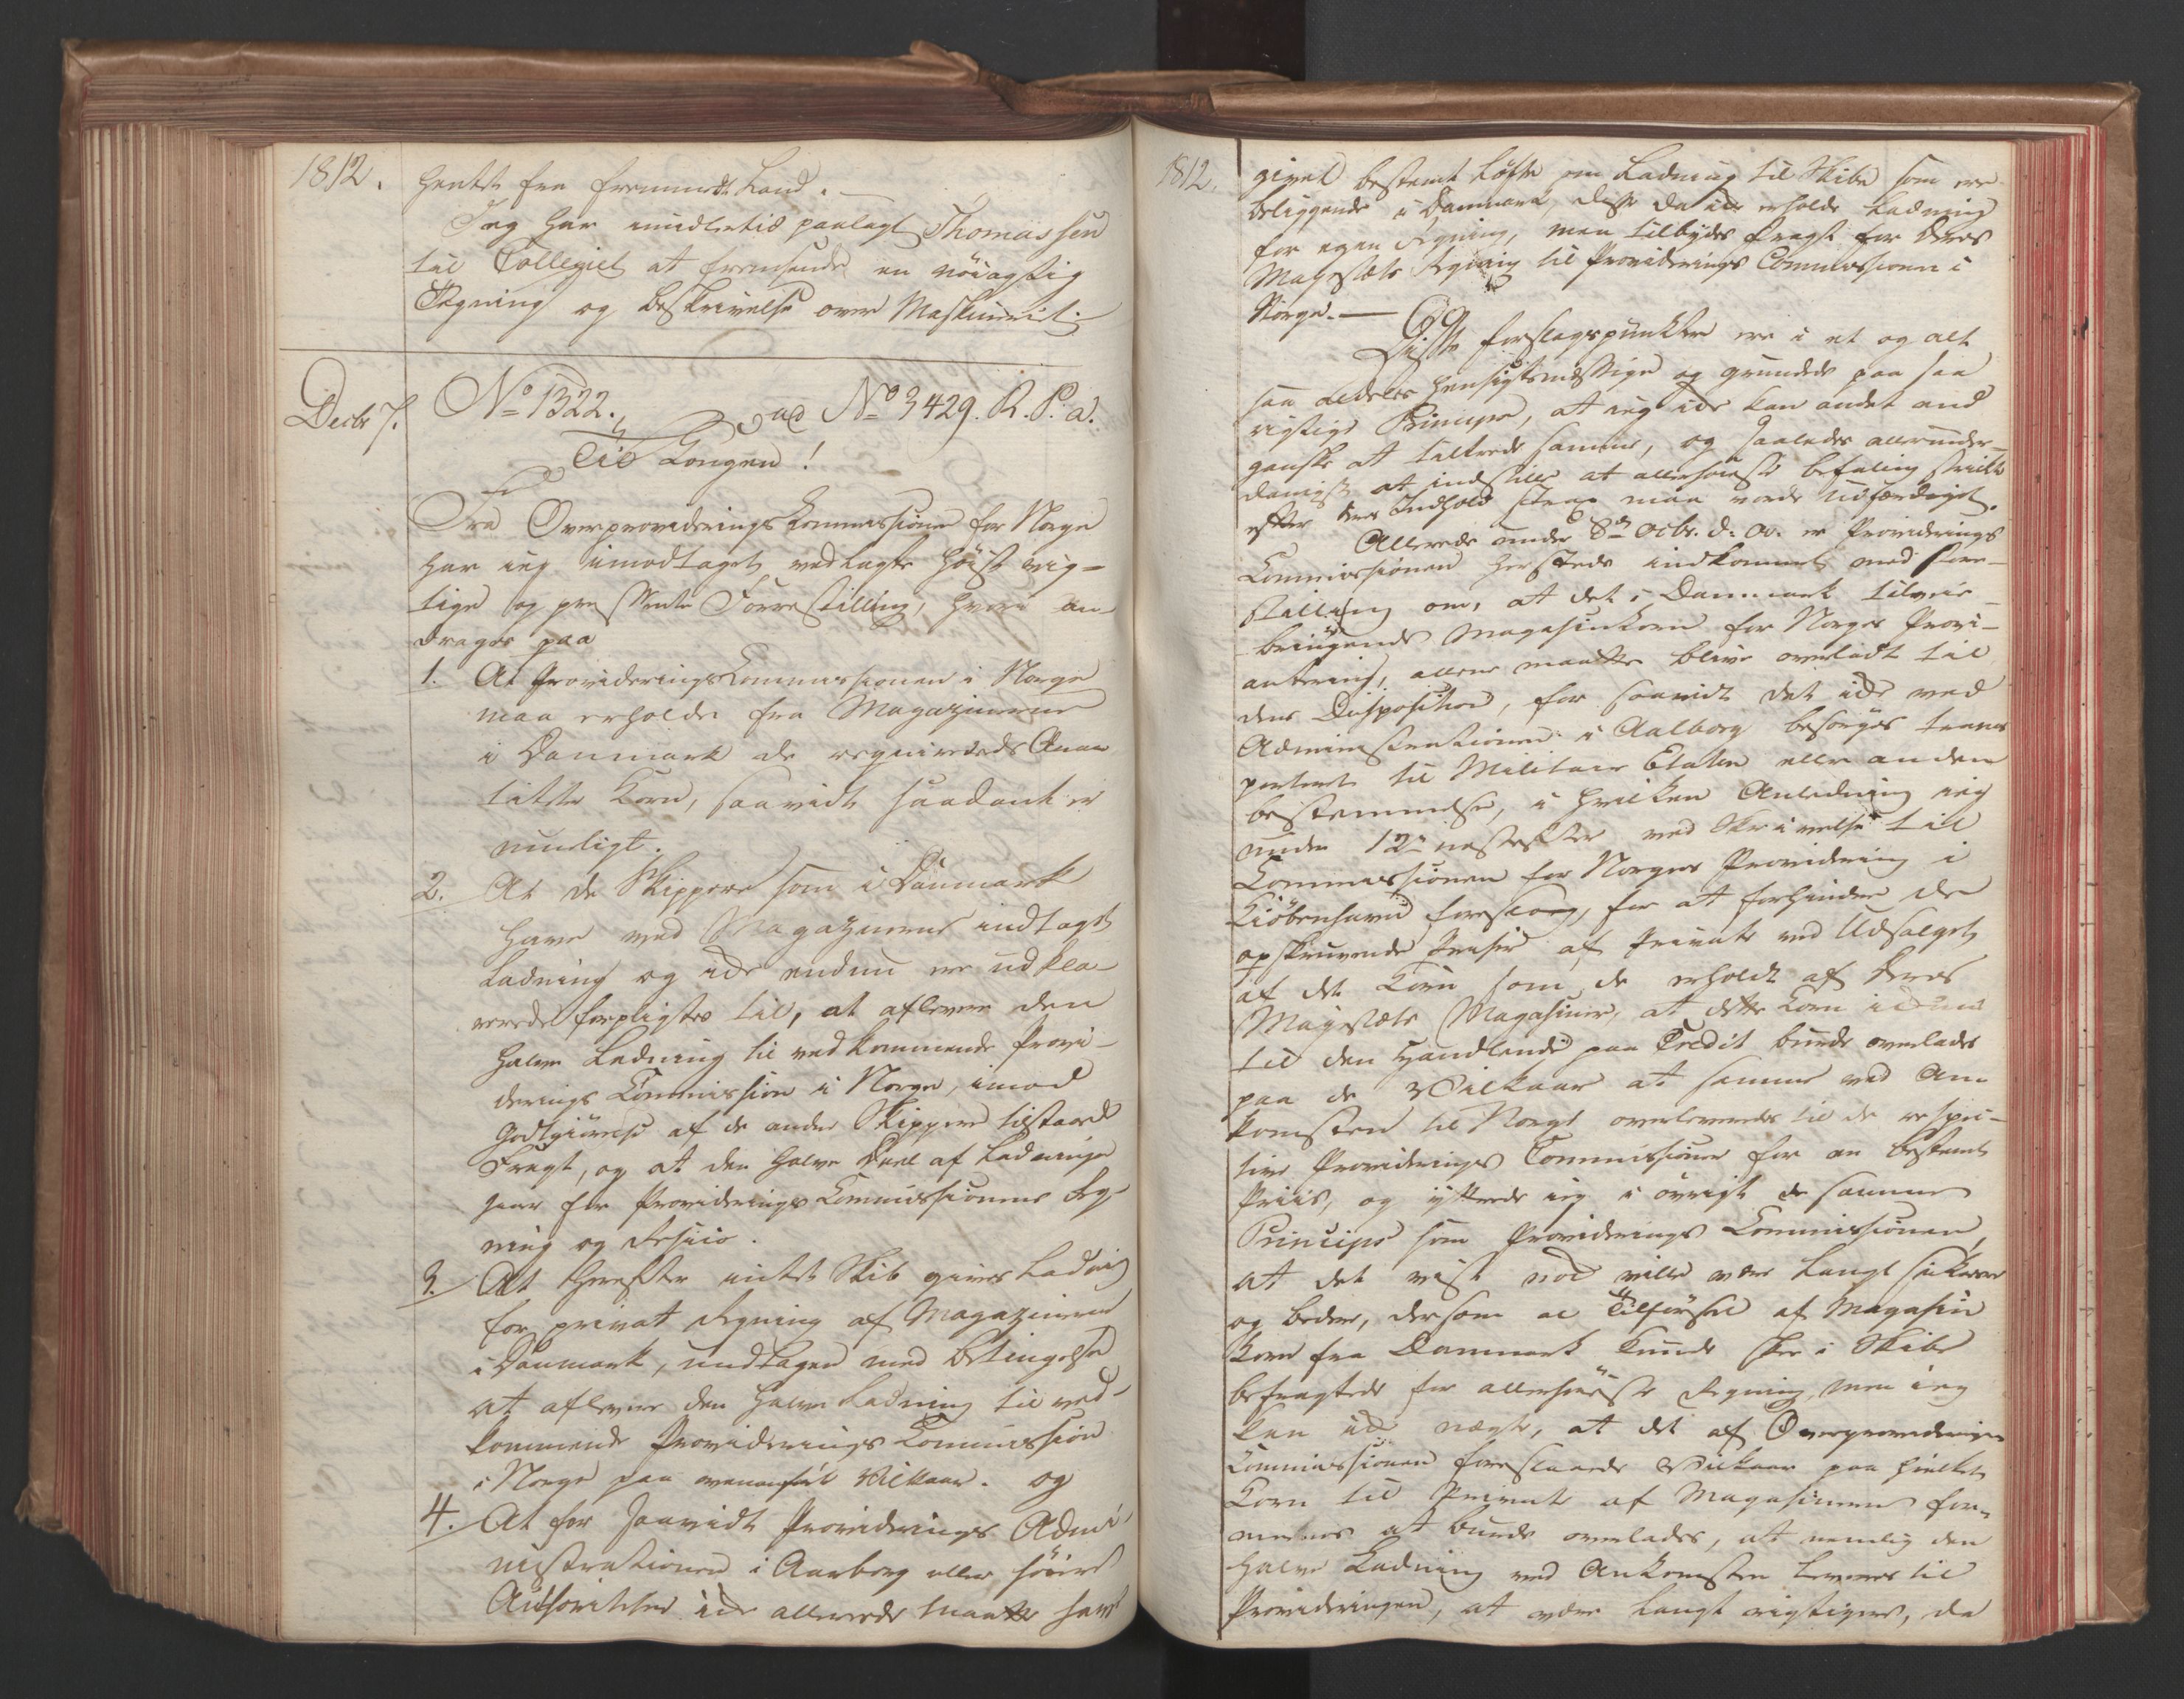 1812.
hentet fra fremmede Land. —
Jeg har imidlertid paalagt Thomassen
til Collegiet at fremsende en nöiagtig
Tegning og Beskrivelse over Maskineriet.
Decbr 7.
No 1322. ad No 3429. R. P. a.
Til Kongen!
Fra Overprovideringskommissionen for Norge
har ieg imodtaget vedlagte höist vig-
tige og pressente Forrestilling, hvori an-
drages paa
1. At ProvideringsCommissionen i Norge
maa erholde fra Magazinerne
i Danmark de requirerede Qvan
titeter Korn, saavidt saadant er
mueligt.
2. At de Skippere som i Danmark
have ved Magazinerne indtaget
Ladning og ikke endnu ere udkla-
rerede forpligtes til, at aflevere den
halve Ladning til vedkommende Provi-
derings Commission i Norge, imod
Godtgiörelse af de andre Skippere tilstaaet
Fragt, og at den halve Deel af Ladningen
gaaer for Providerings Commissionens Reg-
ning og Resico.
3. At herefter intet Skib gives Ladning
for privat Regning af Magazinerne
i Danmark, undtagen med Betingelse
at aflevere den halve Ladning til ved-
kommende Providerings Commission
i Norge paa ovenanfört Vilkaar. og
4. At for saavidt Providerings Admi-
nistrationen i Aarborg eller höiere
Authoriteter ikke allerede maatte have
1812.
givet bestemt Löfte om Ladning til Skibe som ere
beliggende i Danmark, disse da ikke erholde Ladning
for egen Regning, men tilbydes Fragt for Deres
Majestæts Regning til Providerings Commissionen i
Norge. —
Disse Forslagspunkter ere i et og alt
saa aldeles hensigtsmæssige og grundede paa saa
rigtige Principer, at ieg ikke kan andet end
ganske at tiltræde samme, og saaledes allerunder-
danigst at indstille at allerhöieste Befaling strikte
efter deres Indhold strax maa vorde udfærdiget.
Allerede under 8de Octbr. d: A. er Providerings
Commissionen hersteds indkommet med Fore-
stilling om, at det i Danmark tilveie-
bringende Magasinkorn for Norges Provi-
antering, allene maatte blive overladt til
dens Disposition, for saavidt det ikke ved
Administrationen i Aalborg besörges trans
porteret til Militair Etaten eller anden
bestemmelse, i hvilken Anledning ieg
under 12te næstefter ved Skrivelse til
Commissionen for Norges Providering i
Kiöbenhavn foreslog, for at forhindre de
opskruende Priser af Private ved Udsalget
af det Korn som de erholdt af Deres
Majestæts Magasiner, at dette Korn
til den Handlende paa Credit burde overlades
paa de Vilkaar at samme ved An
komsten til Norge overleveredes til de respec-
tive Providerings Commissioner for en bestemt
Priis, og yttrede ieg i övrigt de samme
Principer som Providerings Commissionen,
at det vist nok ville være langt sikkrere
og bedre, dersom al Tilförsel af Magasin
Korn fra Danmark kunde skee i Skibe
befragtede for allerhöieste Regning, men ieg
kan ikke nægte, at det af Overproviderings
Commissionen foreslaaede Vilkaar paa hvilket
Korn til Private af Magasinerne for-
menes at burde overlades, at nemlig den
halve Ladning ved Ankomsten leveres til
Provideringen, at være langt rigtigere, da